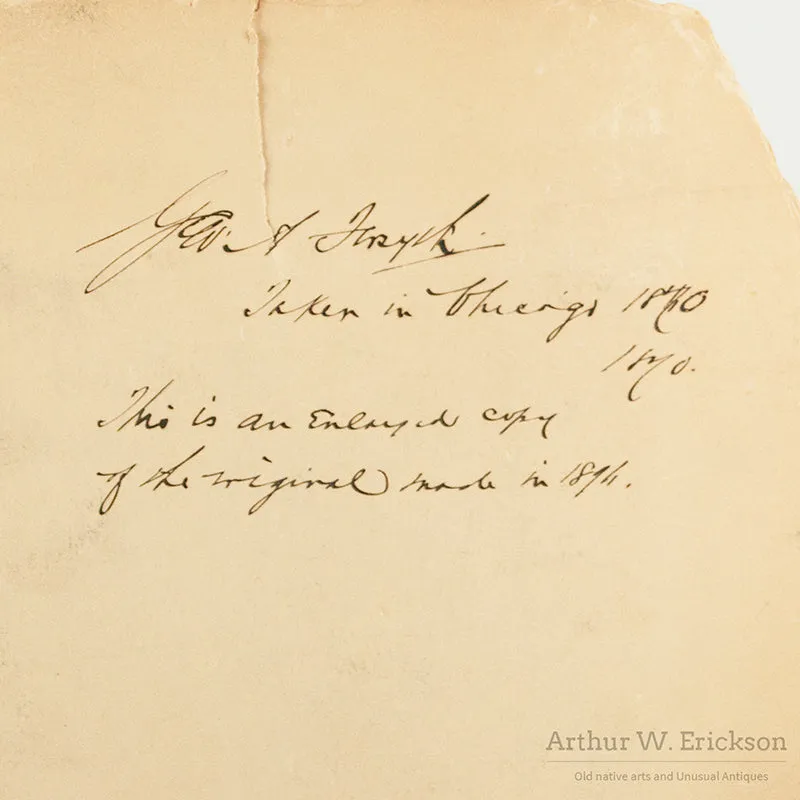 Geo. A Forsyth.
Taken in Chicago 1870
1870.
This is an Enlarged copy
of the original made in 1894.
Arthur W. Erickson
Old native arts and Unusual Antiques